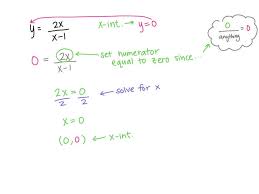 y = 2x/(x-1)   x-int. → y=0
0/anything = 0
0 = 2x/(x-1) ← set numerator equal to zero since...
2x/2 = 0/2 ← solve for x
x = 0
(0,0) ← x-int.